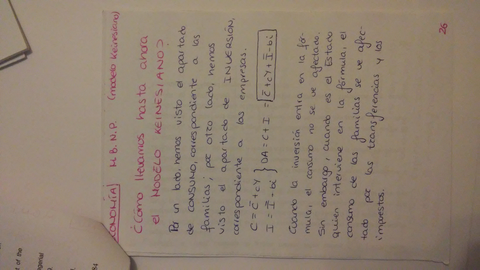 CONOMÍA) H.B.N.P. (modelo Keinesiano)
¿Cómo llevamos hasta ahora
el MODELO KEINESIANO?
Por un lado, hemos visto el apartado
de CONSUMO, correspondiente a las
familias; por otro lado, hemos
visto el apartado de INVERSIÓN,
correspondiente a las empresas.
C = C̄ + cY
I = Ī - bi } DA = C + I = C̄ + cY + Ī - bi
Cuando la inversión entra en la fór-
mula, el consumo no se ve afectado.
Sin embargo, cuando es el Estado
quien interviene en la fórmula, el
consumo de las familias se ve afec-
tado por las transferencias y los
impuestos.
26
of the